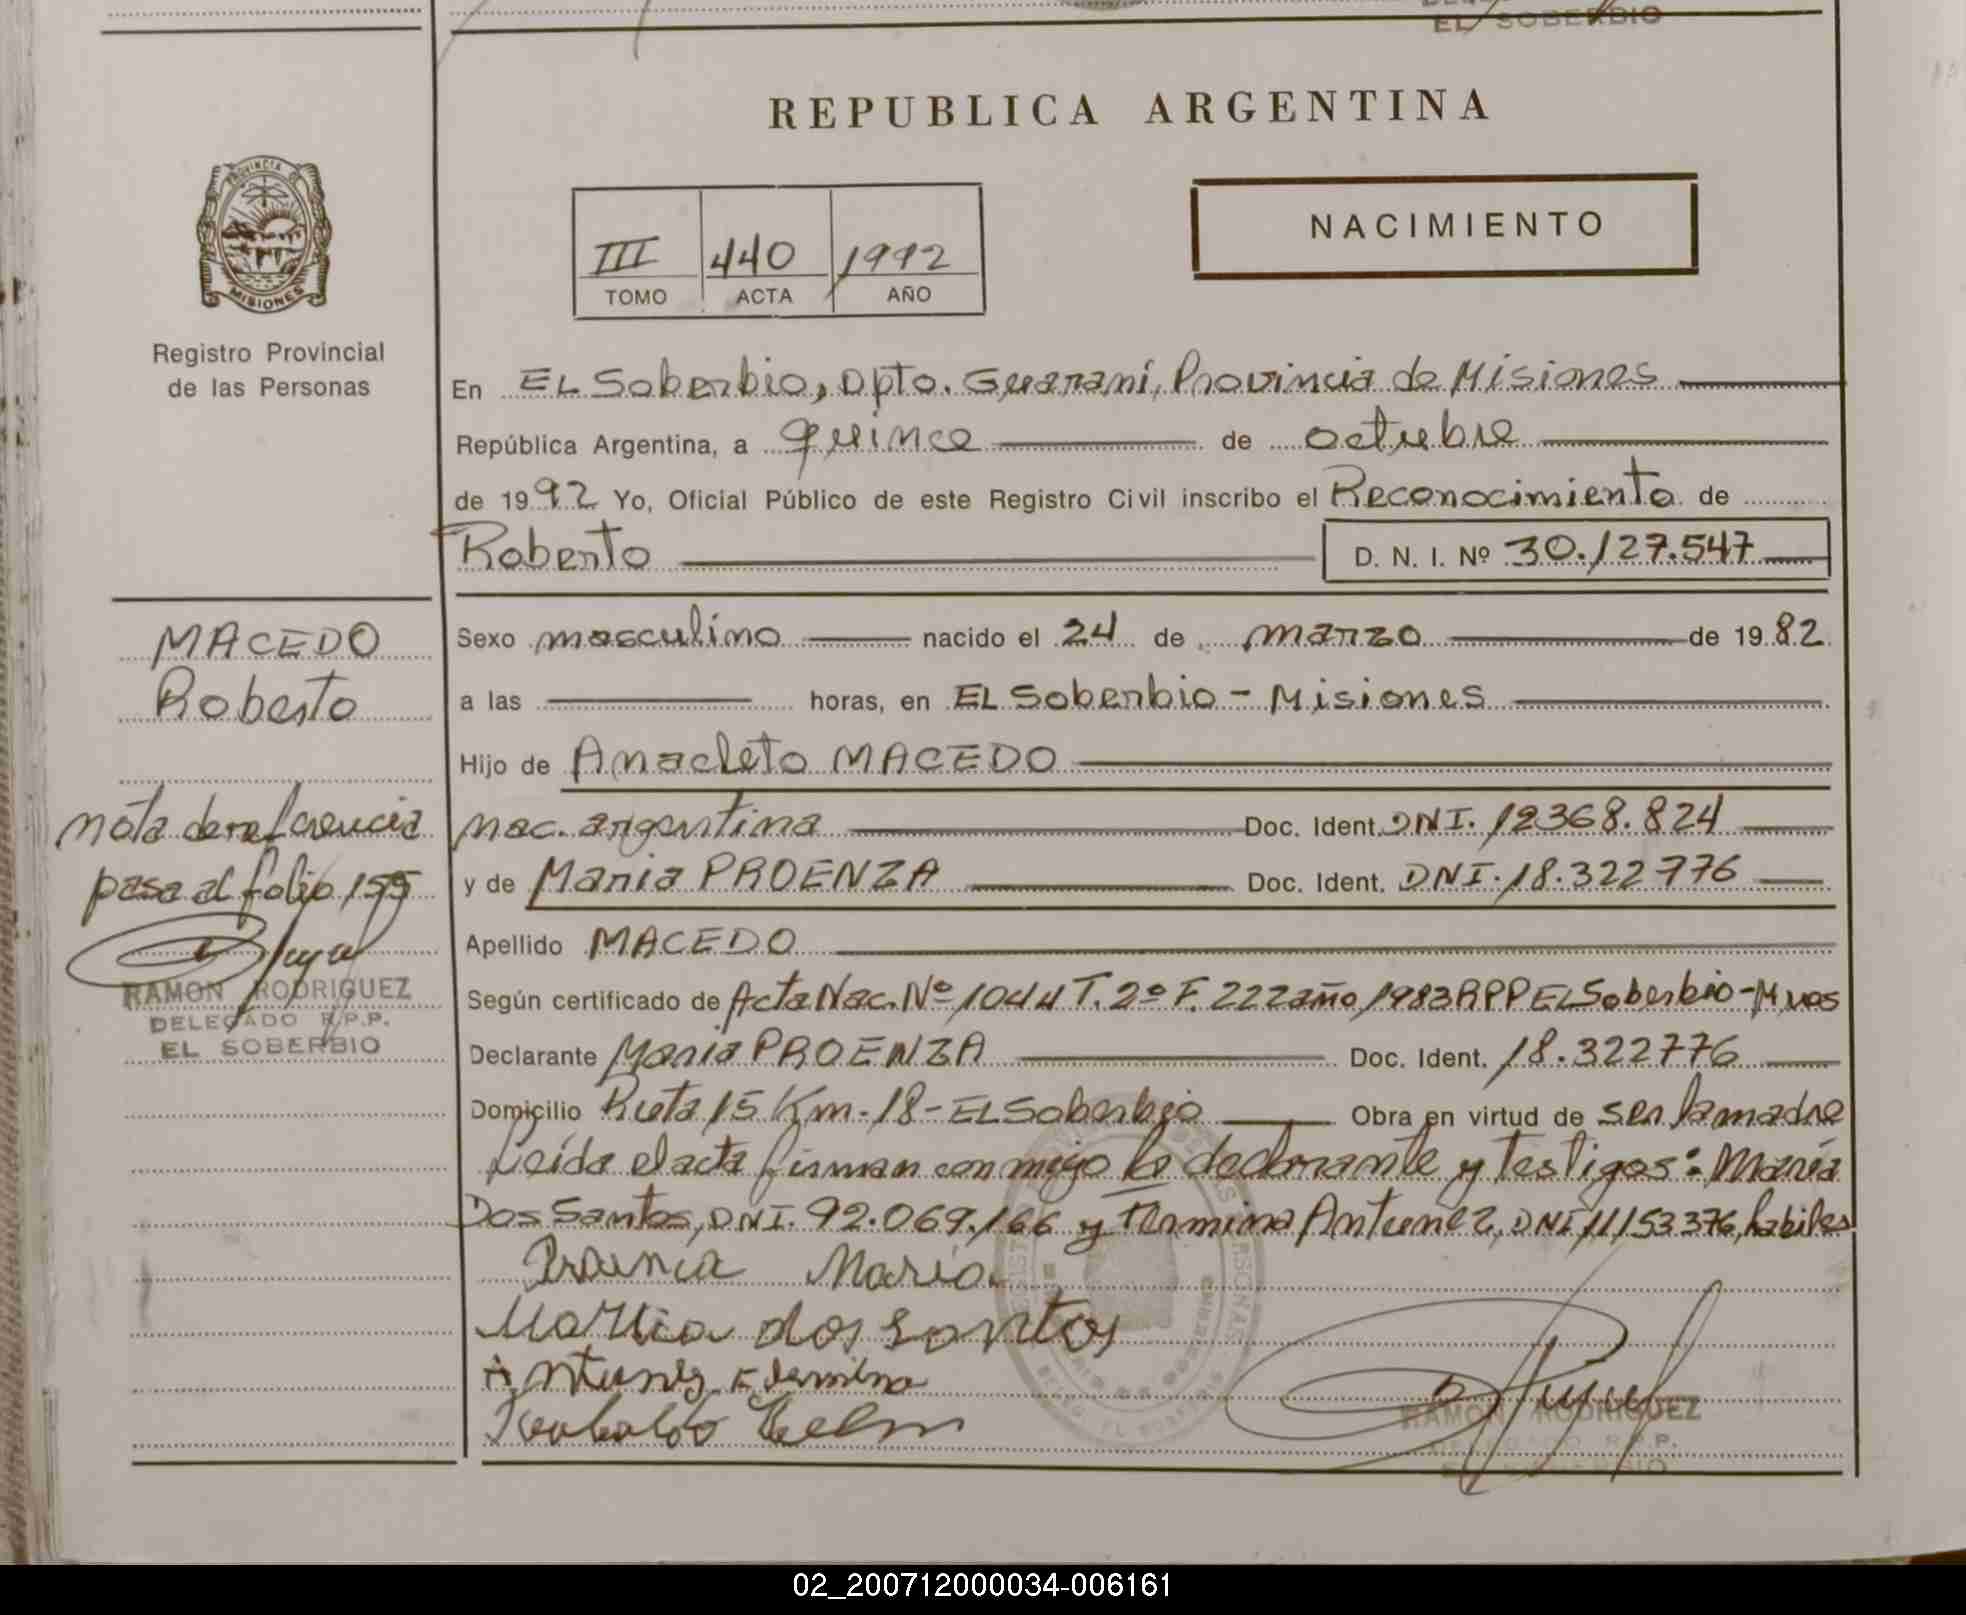 EL SOBERBIO
REPUBLICA ARGENTINA
PROVINCIA DE
MISIONES
NACIMIENTO
III 440 1992
TOMO ACTA AÑO
Registro Provincial
de las Personas
En EL Soberbio, Dpto. Guaraní, Provincia de Misiones
República Argentina, a quince de octubre
de 1992 Yo, Oficial Público de este Registro Civil inscribo el Reconocimiento de
Roberto D. N. I. Nº 30.127.547
MACEDO
Roberto
nota de referencia
pasa al folio 155
RAMON RODRIGUEZ
DELEGADO R.P.P.
EL SOBERBIO
Sexo masculino nacido el 24 de marzo de 1982
a las horas, en EL Soberbio - Misiones
Hijo de Anacleto MACEDO
nac. argentina Doc. Ident. DNI. 12368.824
y de Maria PROENZA Doc. Ident. DNI. 18.322776
Apellido MACEDO
Según certificado de Acta Nac. Nº 1044 T. 2º F. 222 año 1983 RPP EL Soberbio - Mnes
Declarante Maria PROENZA Doc. Ident. 18.322776
Domicilio Ruta 15 Km - 18 - EL Soberbio Obra en virtud de ser la madre
Leída el acta firman conmigo la declarante y testigos: María
Dos Santos, DNI. 92.069.166 y Hermina Antunez, DNI 11153376, habiles
Maria
Maria dos santos
RAMON RODRIGUEZ
DELEGADO R.P.P.
EL SOBERBIO
02_200712000034-006161